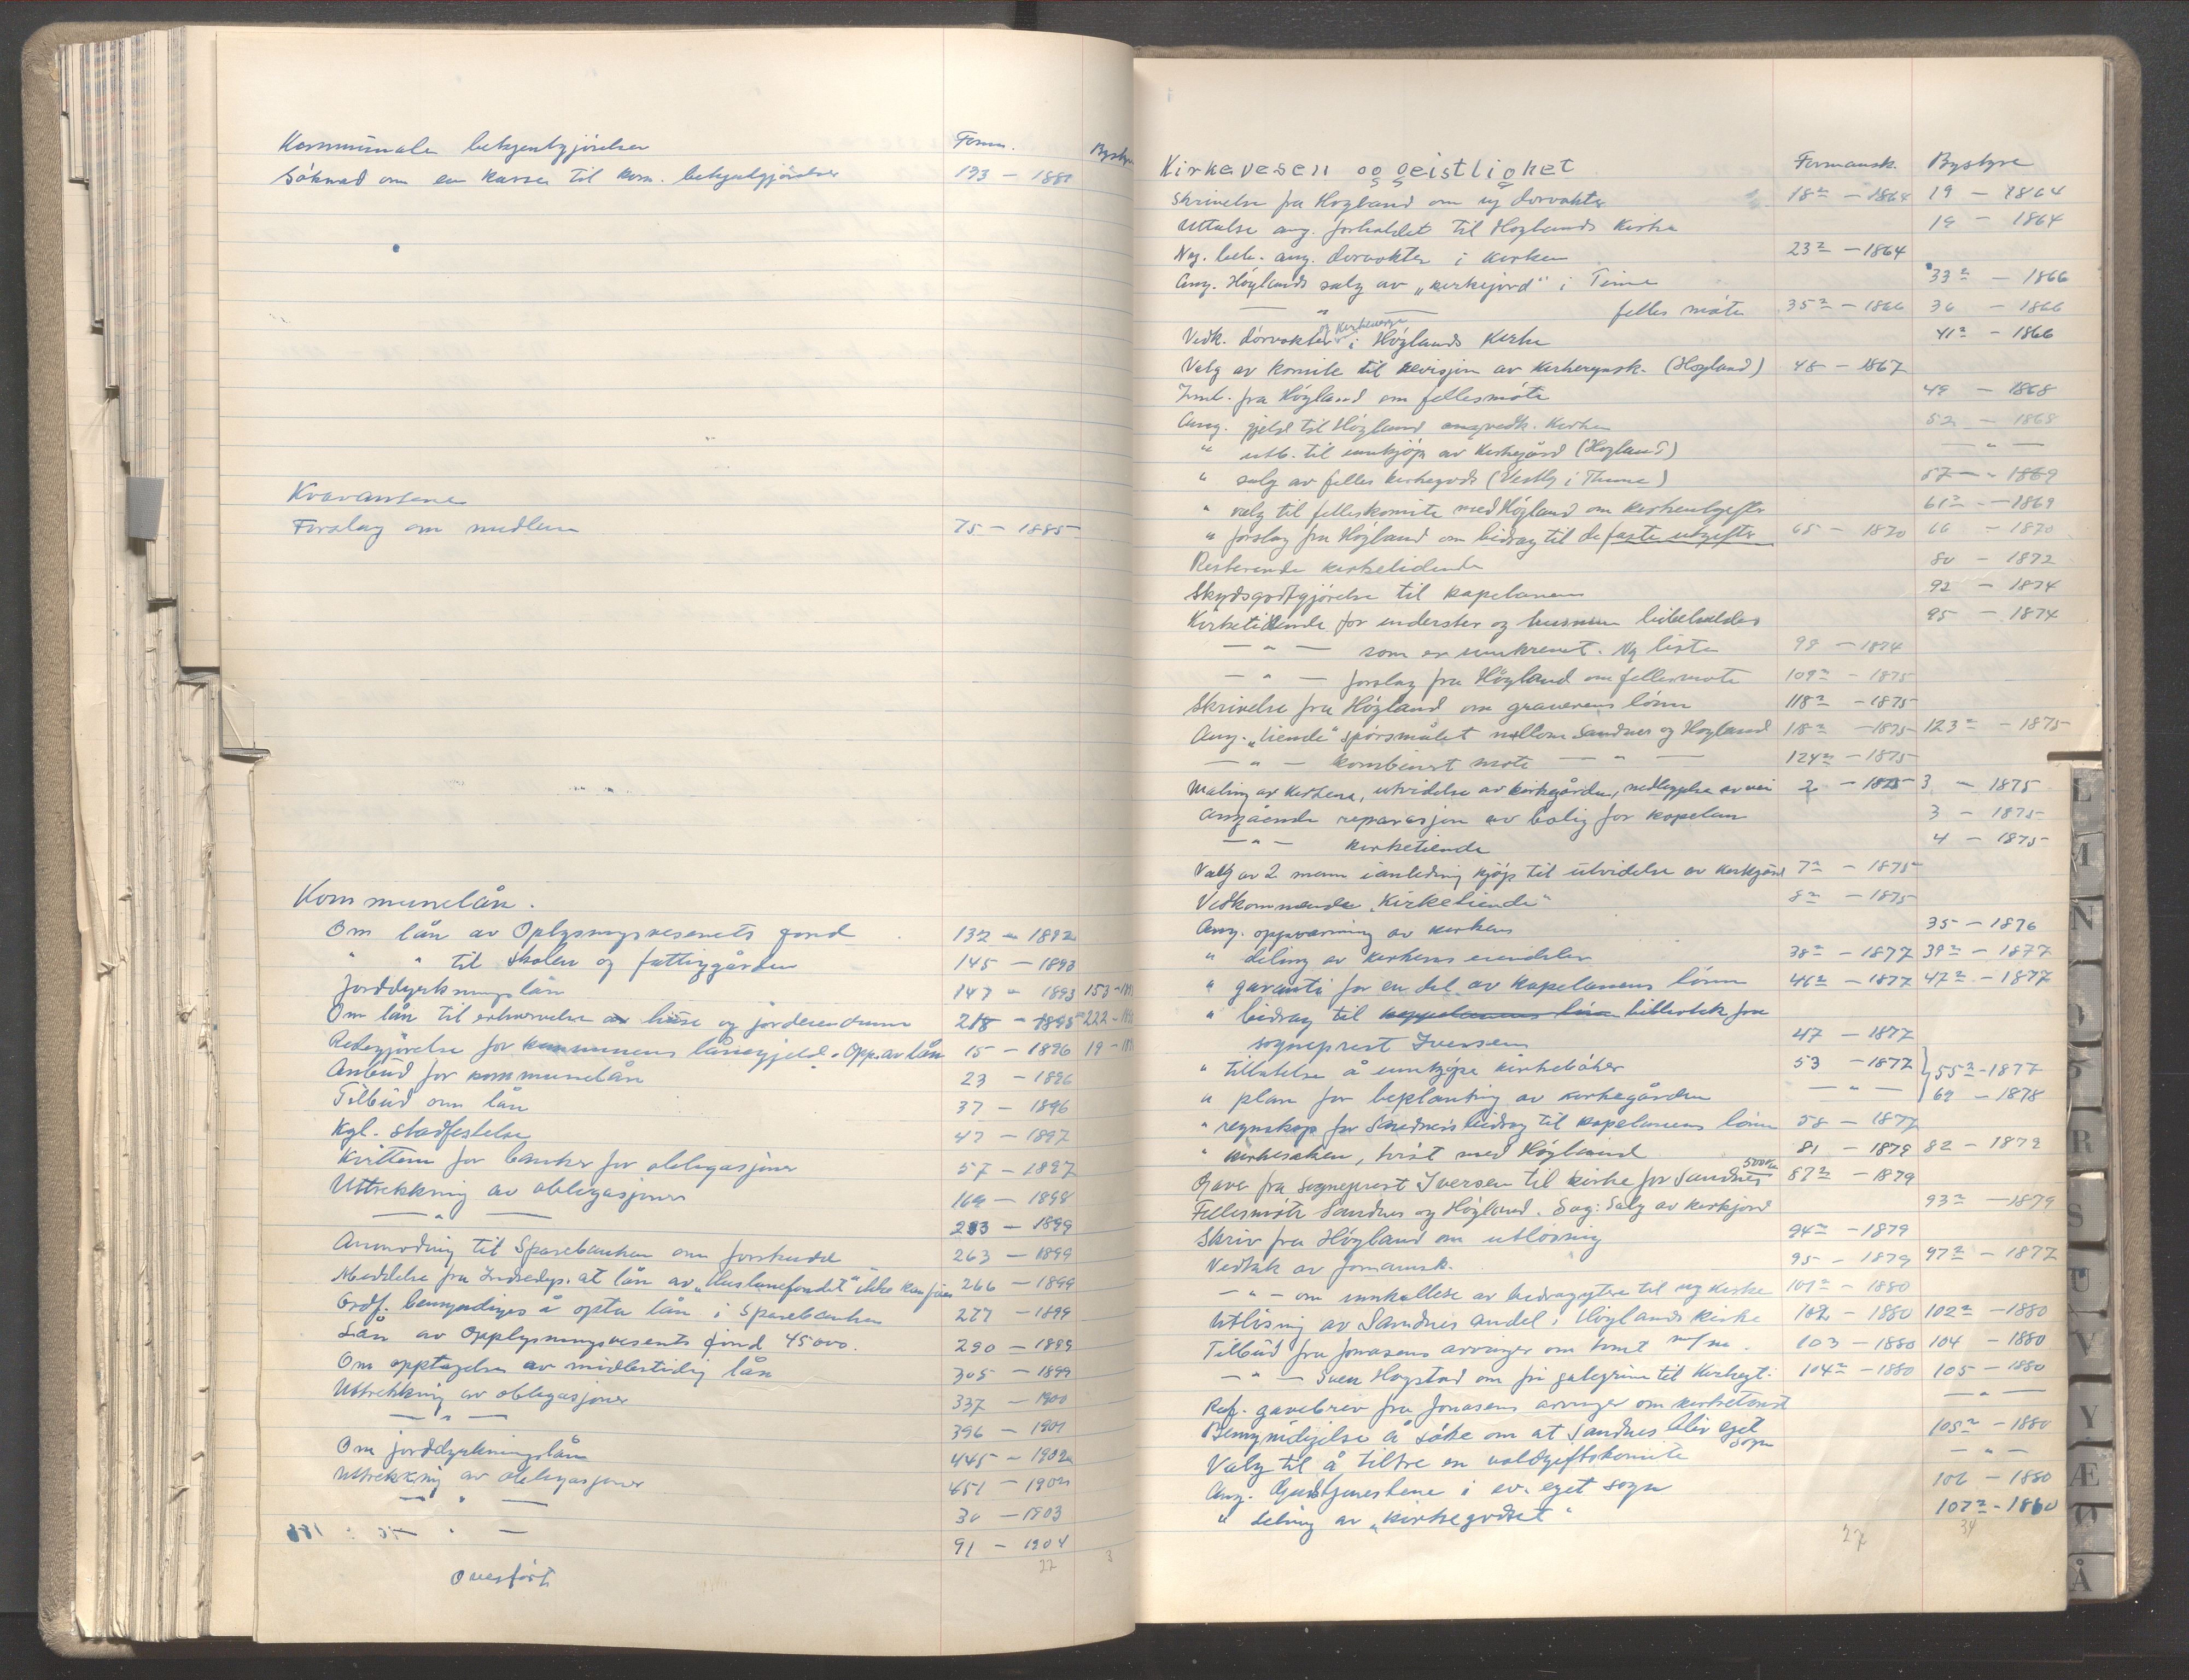 Kommunale bekjentgjörelser Form. Bystyr
Söknad om en kasse til kom. bekjentgjörelser 193 - 1881
Kravansene
Forslag om medlem 75 - 1885
Kommunelån.
Om lån av Oplysningsvesenets fond 132 - 1892
" " til skolen og fattiggården 145 - 1893
Jorddyrkningslån 147 - 1893 153 - 189
Om lån til erhvervelse av huse og jordeiendomme 218 - 1895 222 - 189
Redegjörelse for kommunens lånegjeld. Opp. av lån 15 - 1896 19 - 189
Anbud for kommunelån 23 - 1896
Tilbud om lån 37 - 1896
Kgl. stadfestelse 47 - 1897
Kvittem for banker for obligasjoner 57 - 1897
Uttrekkning av obligasjoner 169 - 1898
— " — 283 - 1899
Anmodning til Sparebanken om forskudd 263 - 1899
Meddelelse fra Indredep. at lån av "Huslånefondet" ikke kan fåes 266 - 1899
Ordf. bemyndiges å opta lån i Sparebanken 277 - 1899
Lån av Opplysningsvesents fond 45000. 290 - 1899
Om opptagelse av midlertidig lån 305 - 1899
Uttrekkning av obligasjoner 337 - 1900
— " — 396 - 1901
Om jorddyrkningslån 445 - 1902
Uttrekkning av obligasjoner 451 - 1902
— " — 30 - 1903
— " — 91 - 1904
Overfört 22 3
Kirkevesen og geistlighet Formansk. Bystyre
Skrivelse fra Hogland om ny dorvokter 18² - 1864 19 - 1864
Uttalse ang. forholdet til Hoglands kirke 19 - 1864
Neg. beh. ang. dorvokter i kirken 23² - 1864
Ang. Höglands salg av "kirkejord" i Time 33² - 1866
— " — felles möte 35² - 1866 36 - 1866
Vedk. dörvokter og kirkeverge i Höglands Kirke 41² - 1866
Valg av komite til revisjon av kirkeregnsk. (Hogland) 48 - 1867
Innb. fra Högland om fellesmöte 49 - 1868
Ang. gjeld til Högland angvedk. kirken 52 - 1868
" utb. til innkjöp av kirkegård (Hogland) — " —
" salg av felles kirkegods (Vestly i Thime) 57 - 1869
" valg til felleskomite med Högland om kirkeutgifter 61² - 1869
" forslag fra Högland om bidrag til de faste utgifter 65 - 1870 66 - 1870
Resterende kirketiende 80 - 1872
Skydsgodtgjörelse til kapelanen 92 - 1874
Kirketiende for inderster og husmenn bibeholdes 95 - 1874
— " — som er innkrevet. Ny liste 98 - 1874
— " — forslag fra Högland om fellesmöte 109² - 1875
Skrivelse fra Högland om graverens lönn 118² - 1875
Ang. "tiende" spörsmålet mellom Sandnes og Hogland 118² - 1875 123² - 1875
— " — kombinert möte — " — 124² - 1875
Maling av kirkene, utvidelse av kirkegården, nedleggelse av vei 2 - 1875 3 - 1875
Angående reparasjon av bolig for kapelan 3 - 1875
— " — kirketiende 4 - 1875
Valg av 2 menn i anledning kjöp til utvidelse av kirkegård 7² - 1875
Vedkommende "Kirketiende" 8² - 1875
Ang. oppvarming av kirken 35 - 1876
" deling av kirkens eiendeler 38² - 1877 39² - 1877
" garanti for en del av kapelanens lönn 46² - 1877 47² - 1877
" bidrag til kappelanens lön bibliotek fra
sogneprest Iversen 47 - 1877
" tillatelse å innkjöpe kirkeböker 53 - 1877 } 55² - 1877
" plan for beplantning av kirkegården — " — 69 - 1878
" regnskap for Sandnes bidrag til kapelanens lönn 58 - 1877
" kirkesaken, tvist med Högland 81 - 1879 82 - 1879
Gave fra sogneprest Iversen til kirke for Sandnes 500 kr 87² - 1879
Fellesmöte Sandnes og Högland. Sag: Salg av kirkejord 93² - 1879
Skriv fra Högland om utlösning 94² - 1879
Vedtak av formannsk. 95 - 1879 97² - 1877
— " — om innkallelse av bidragytere til ny kirke 101² - 1880
Utlösning av Sandnes andel i Höglands kirke 102 - 1880 102² - 1880
Tilbud fra Jonasens arvinger om tomt m/m. 103 - 1880 104 - 1880
— " — Sven Hogstad om fri gategrunn til Kirkegt. 104² - 1880 105 - 1880
Ref. gavebrev fra Jonasens arvinger om kirketomt — " —
Bemyndigelse å söke om at Sandnes blir eget sogn 105² - 1880
Valg til å tiltre en voldgiftskomite — " —
Ang. Gudstjenestene i ev. eget sogn 106 - 1880
" deling av "kirkegodset" 107² - 1880
27 34
L
M
N
O
P
R
S
U
V
Y
Æ
Ø
Å